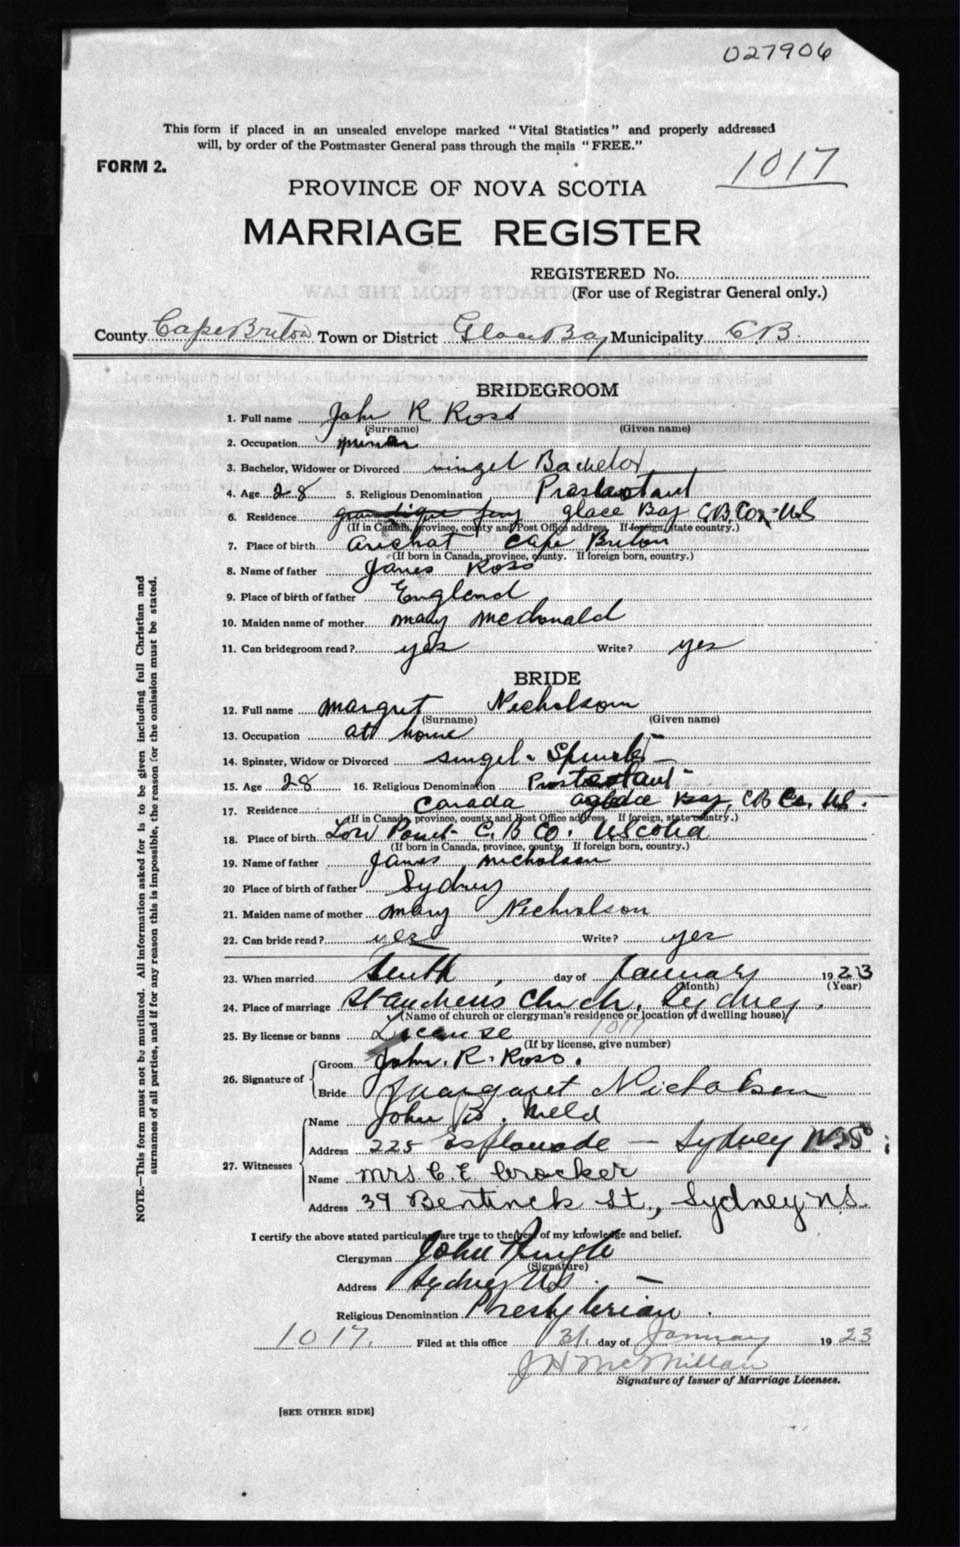 027906
This form if placed in an unsealed envelope marked "Vital Statistics" and properly addressed
will, by order of the Postmaster General pass through the mails "FREE."
FORM 2.
1017
PROVINCE OF NOVA SCOTIA
MARRIAGE REGISTER
REGISTERED No.
(For use of Registrar General only.)
County Cape Briton Town or District Glace Bay Municipality C B.
BRIDEGROOM
1. Full name John R Ross
(Surname) (Given name)
2. Occupation miner
3. Bachelor, Widower or Divorced singel Bachelor
4. Age 28 5. Religious Denomination Prostestant
6. Residence glace Bay C.B. Co. NS
(If in Canada, province, county and Post Office address. If foreign, state country.)
7. Place of birth Arichat Cape Briton
(If born in Canada, province, county. If foreign born, country.)
8. Name of father James Ross
9. Place of birth of father England
10. Maiden name of mother mary mcdonald
11. Can bridegroom read? yes Write? yes
BRIDE
12. Full name margret Nicholson
(Surname) (Given name)
13. Occupation at home
14. Spinster, Widow or Divorced singel -
15. Age 28 16. Religious Denomination Prostestant
17. Residence Canada Bay, CB Co. NS.
(If in Canada, province, county and Post Office address. If foreign, state country.)
18. Place of birth Low Point C. B Co. NScotia
(If born in Canada, province, county. If foreign born, country.)
19. Name of father James nicholson
20 Place of birth of father Sydney
21. Maiden name of mother mary Nicholson
22. Can bride read? yes Write? yes
23. When married Tenth day of January 1923
(Month) (Year)
24. Place of marriage St Andrews Church, Sydney.
(Name of church or clergyman's residence or location of dwelling house)
25. By license or banns License 1017
(If by license, give number)
26. Signature of
Groom John. R. Ross.
Bride Margaret Nicholson
27. Witnesses
Name John B. Meld
Address 225 Esplanade — Sydney N.S.
Name Mrs C. E Crocker
Address 39 Bentinck St., Sydney N.S.
I certify the above stated particulars are true to the best of my knowledge and belief.
Clergyman John Pringle
(Signature)
Address Sydney NS. —
Religious Denomination Presbyterian.
1017. Filed at this office 31 day of January 1923
J H McMillan
Signature of Issuer of Marriage Licenses.
[SEE OTHER SIDE]
NOTE.—This form must not be mutilated. All information asked for is to be given including full Christian and
surnames of all parties, and if for any reason this is impossible, the reason for the omission must be stated.